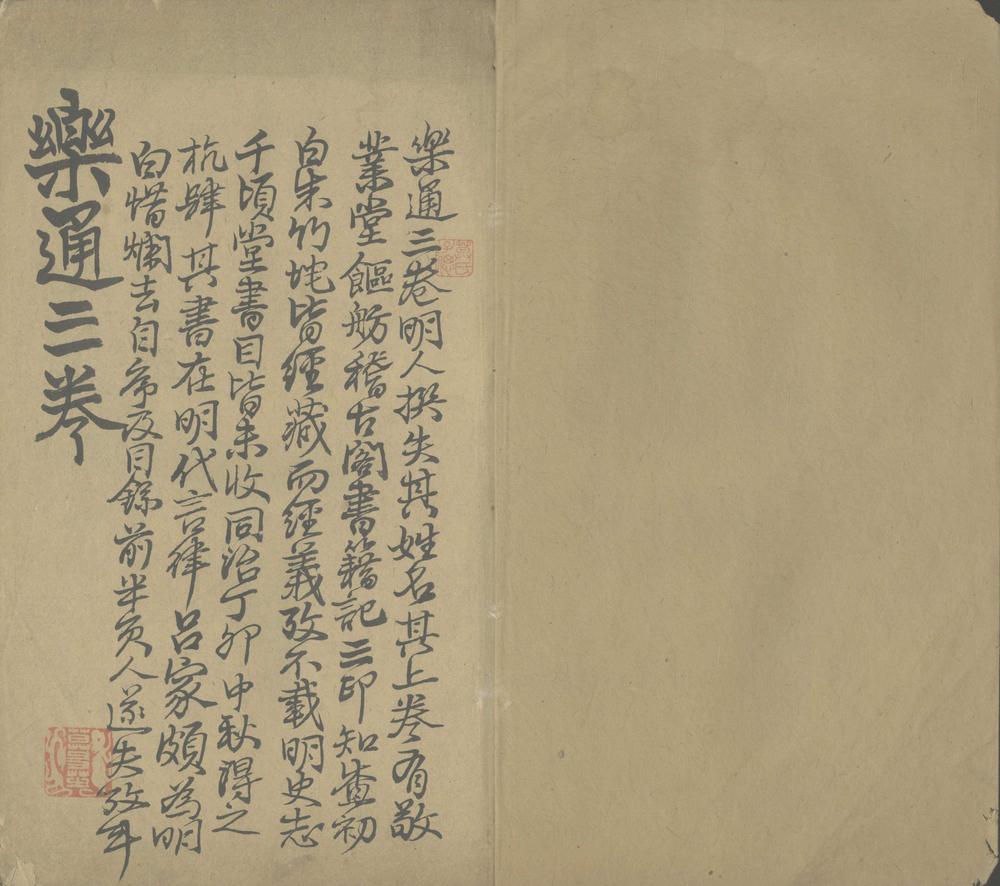 樂通三卷明人撰失其姓名其上卷有敬
業堂饇舫稽古閣書籍記二印知查初
白朱竹垞皆經藏而經義攷不載明史志
千頃堂書目皆未收同治丁卯中秋得之
杭肆其書在明代言律呂家頗為明
白惜爛去自序及目錄前半頁人遂失攷耳
樂通三卷